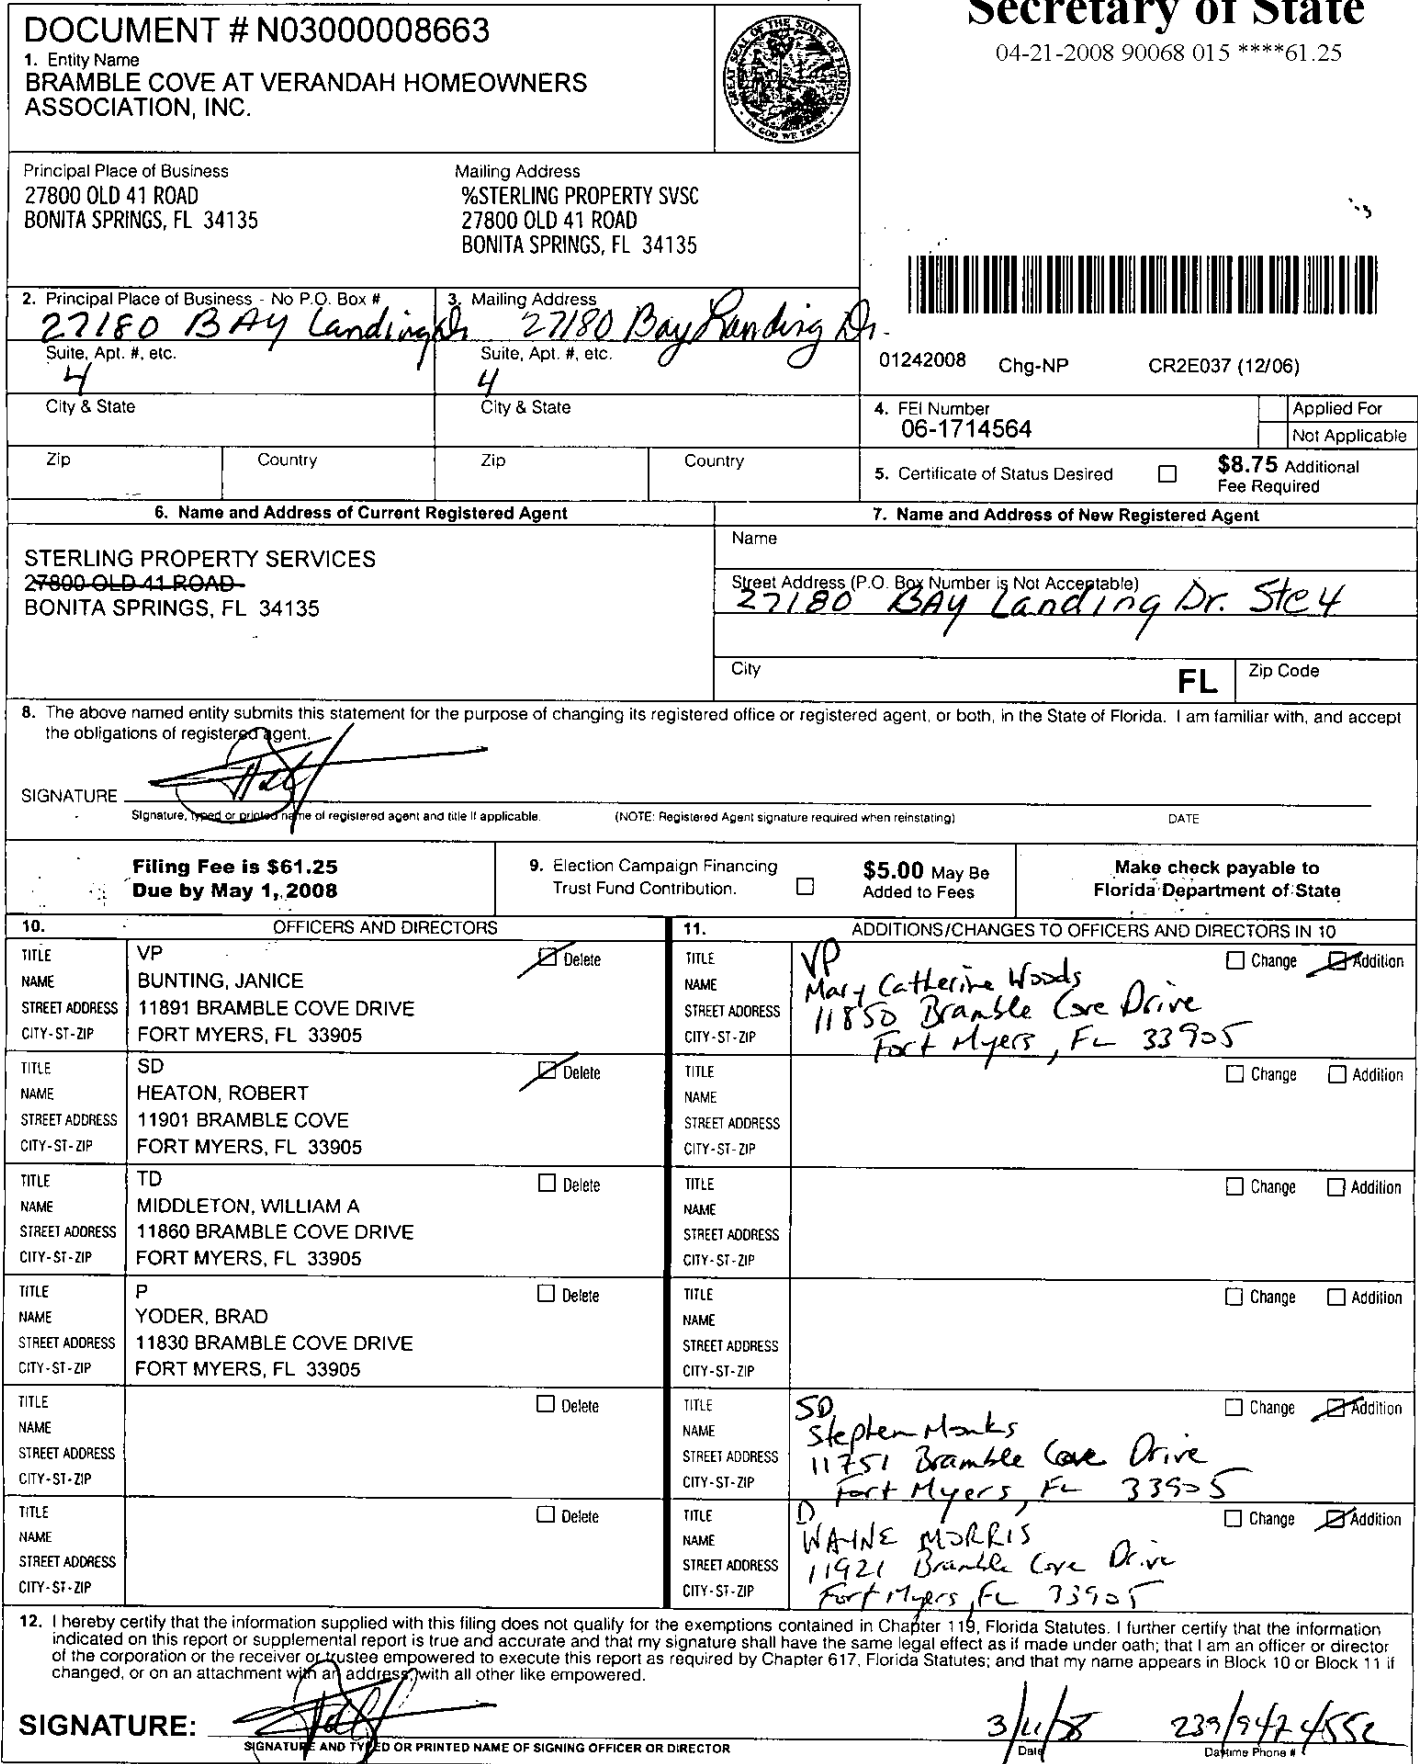 Secretary of State
04-21-2008 90068 015 ****61.25
DOCUMENT # N03000008663
1. Entity Name
BRAMBLE COVE AT VERANDAH HOMEOWNERS
ASSOCIATION, INC.
GREAT SEAL OF THE STATE OF FLORIDA
IN GOD WE TRUST
Principal Place of Business
27800 OLD 41 ROAD
BONITA SPRINGS, FL 34135
Mailing Address
%STERLING PROPERTY SVSC
27800 OLD 41 ROAD
BONITA SPRINGS, FL 34135
2. Principal Place of Business - No P.O. Box #
27180 BAY Landing Dr
Suite, Apt. #, etc.
4
City & State
Zip Country
3. Mailing Address
27180 Bay Landing Dr.
Suite, Apt. #, etc.
4
City & State
Zip Country
01242008 Chg-NP CR2E037 (12/06)
4. FEI Number
06-1714564
Applied For
Not Applicable
5. Certificate of Status Desired
$8.75 Additional
Fee Required
6. Name and Address of Current Registered Agent
STERLING PROPERTY SERVICES
27800 OLD 41 ROAD
BONITA SPRINGS, FL 34135
7. Name and Address of New Registered Agent
Name
Street Address (P.O. Box Number is Not Acceptable)
27180 BAY Landing Dr. Ste 4
City FL Zip Code
8. The above named entity submits this statement for the purpose of changing its registered office or registered agent, or both, in the State of Florida. I am familiar with, and accept
the obligations of registered agent.
SIGNATURE
Signature, typed or printed name of registered agent and title if applicable. (NOTE: Registered Agent signature required when reinstating) DATE
Filing Fee is $61.25
Due by May 1, 2008
9. Election Campaign Financing
Trust Fund Contribution.
$5.00 May Be
Added to Fees
Make check payable to
Florida Department of State
10. OFFICERS AND DIRECTORS
TITLE VP Delete
NAME BUNTING, JANICE
STREET ADDRESS 11891 BRAMBLE COVE DRIVE
CITY-ST-ZIP FORT MYERS, FL 33905
TITLE SD Delete
NAME HEATON, ROBERT
STREET ADDRESS 11901 BRAMBLE COVE
CITY-ST-ZIP FORT MYERS, FL 33905
TITLE TD Delete
NAME MIDDLETON, WILLIAM A
STREET ADDRESS 11860 BRAMBLE COVE DRIVE
CITY-ST-ZIP FORT MYERS, FL 33905
TITLE P Delete
NAME YODER, BRAD
STREET ADDRESS 11830 BRAMBLE COVE DRIVE
CITY-ST-ZIP FORT MYERS, FL 33905
TITLE Delete
NAME
STREET ADDRESS
CITY-ST-ZIP
TITLE Delete
NAME
STREET ADDRESS
CITY-ST-ZIP
11. ADDITIONS/CHANGES TO OFFICERS AND DIRECTORS IN 10
TITLE VP Change Addition
NAME Mary Catherine Woods
STREET ADDRESS 11850 Bramble Cove Drive
CITY-ST-ZIP Fort Myers, FL 33905
TITLE Change Addition
NAME
STREET ADDRESS
CITY-ST-ZIP
TITLE Change Addition
NAME
STREET ADDRESS
CITY-ST-ZIP
TITLE Change Addition
NAME
STREET ADDRESS
CITY-ST-ZIP
TITLE SD Change Addition
NAME Stephen Monks
STREET ADDRESS 11751 Bramble Cove Drive
CITY-ST-ZIP Fort Myers, FL 33905
TITLE D Change Addition
NAME WAYNE MORRIS
STREET ADDRESS 11921 Bramble Cove Drive
CITY-ST-ZIP Fort Myers, FL 33905
12. I hereby certify that the information supplied with this filing does not qualify for the exemptions contained in Chapter 119, Florida Statutes. I further certify that the information
indicated on this report or supplemental report is true and accurate and that my signature shall have the same legal effect as if made under oath; that I am an officer or director
of the corporation or the receiver or trustee empowered to execute this report as required by Chapter 617, Florida Statutes; and that my name appears in Block 10 or Block 11 if
changed, or on an attachment with an address, with all other like empowered.
SIGNATURE: 3/11/08 239/947 4552
SIGNATURE AND TYPED OR PRINTED NAME OF SIGNING OFFICER OR DIRECTOR Date Daytime Phone #